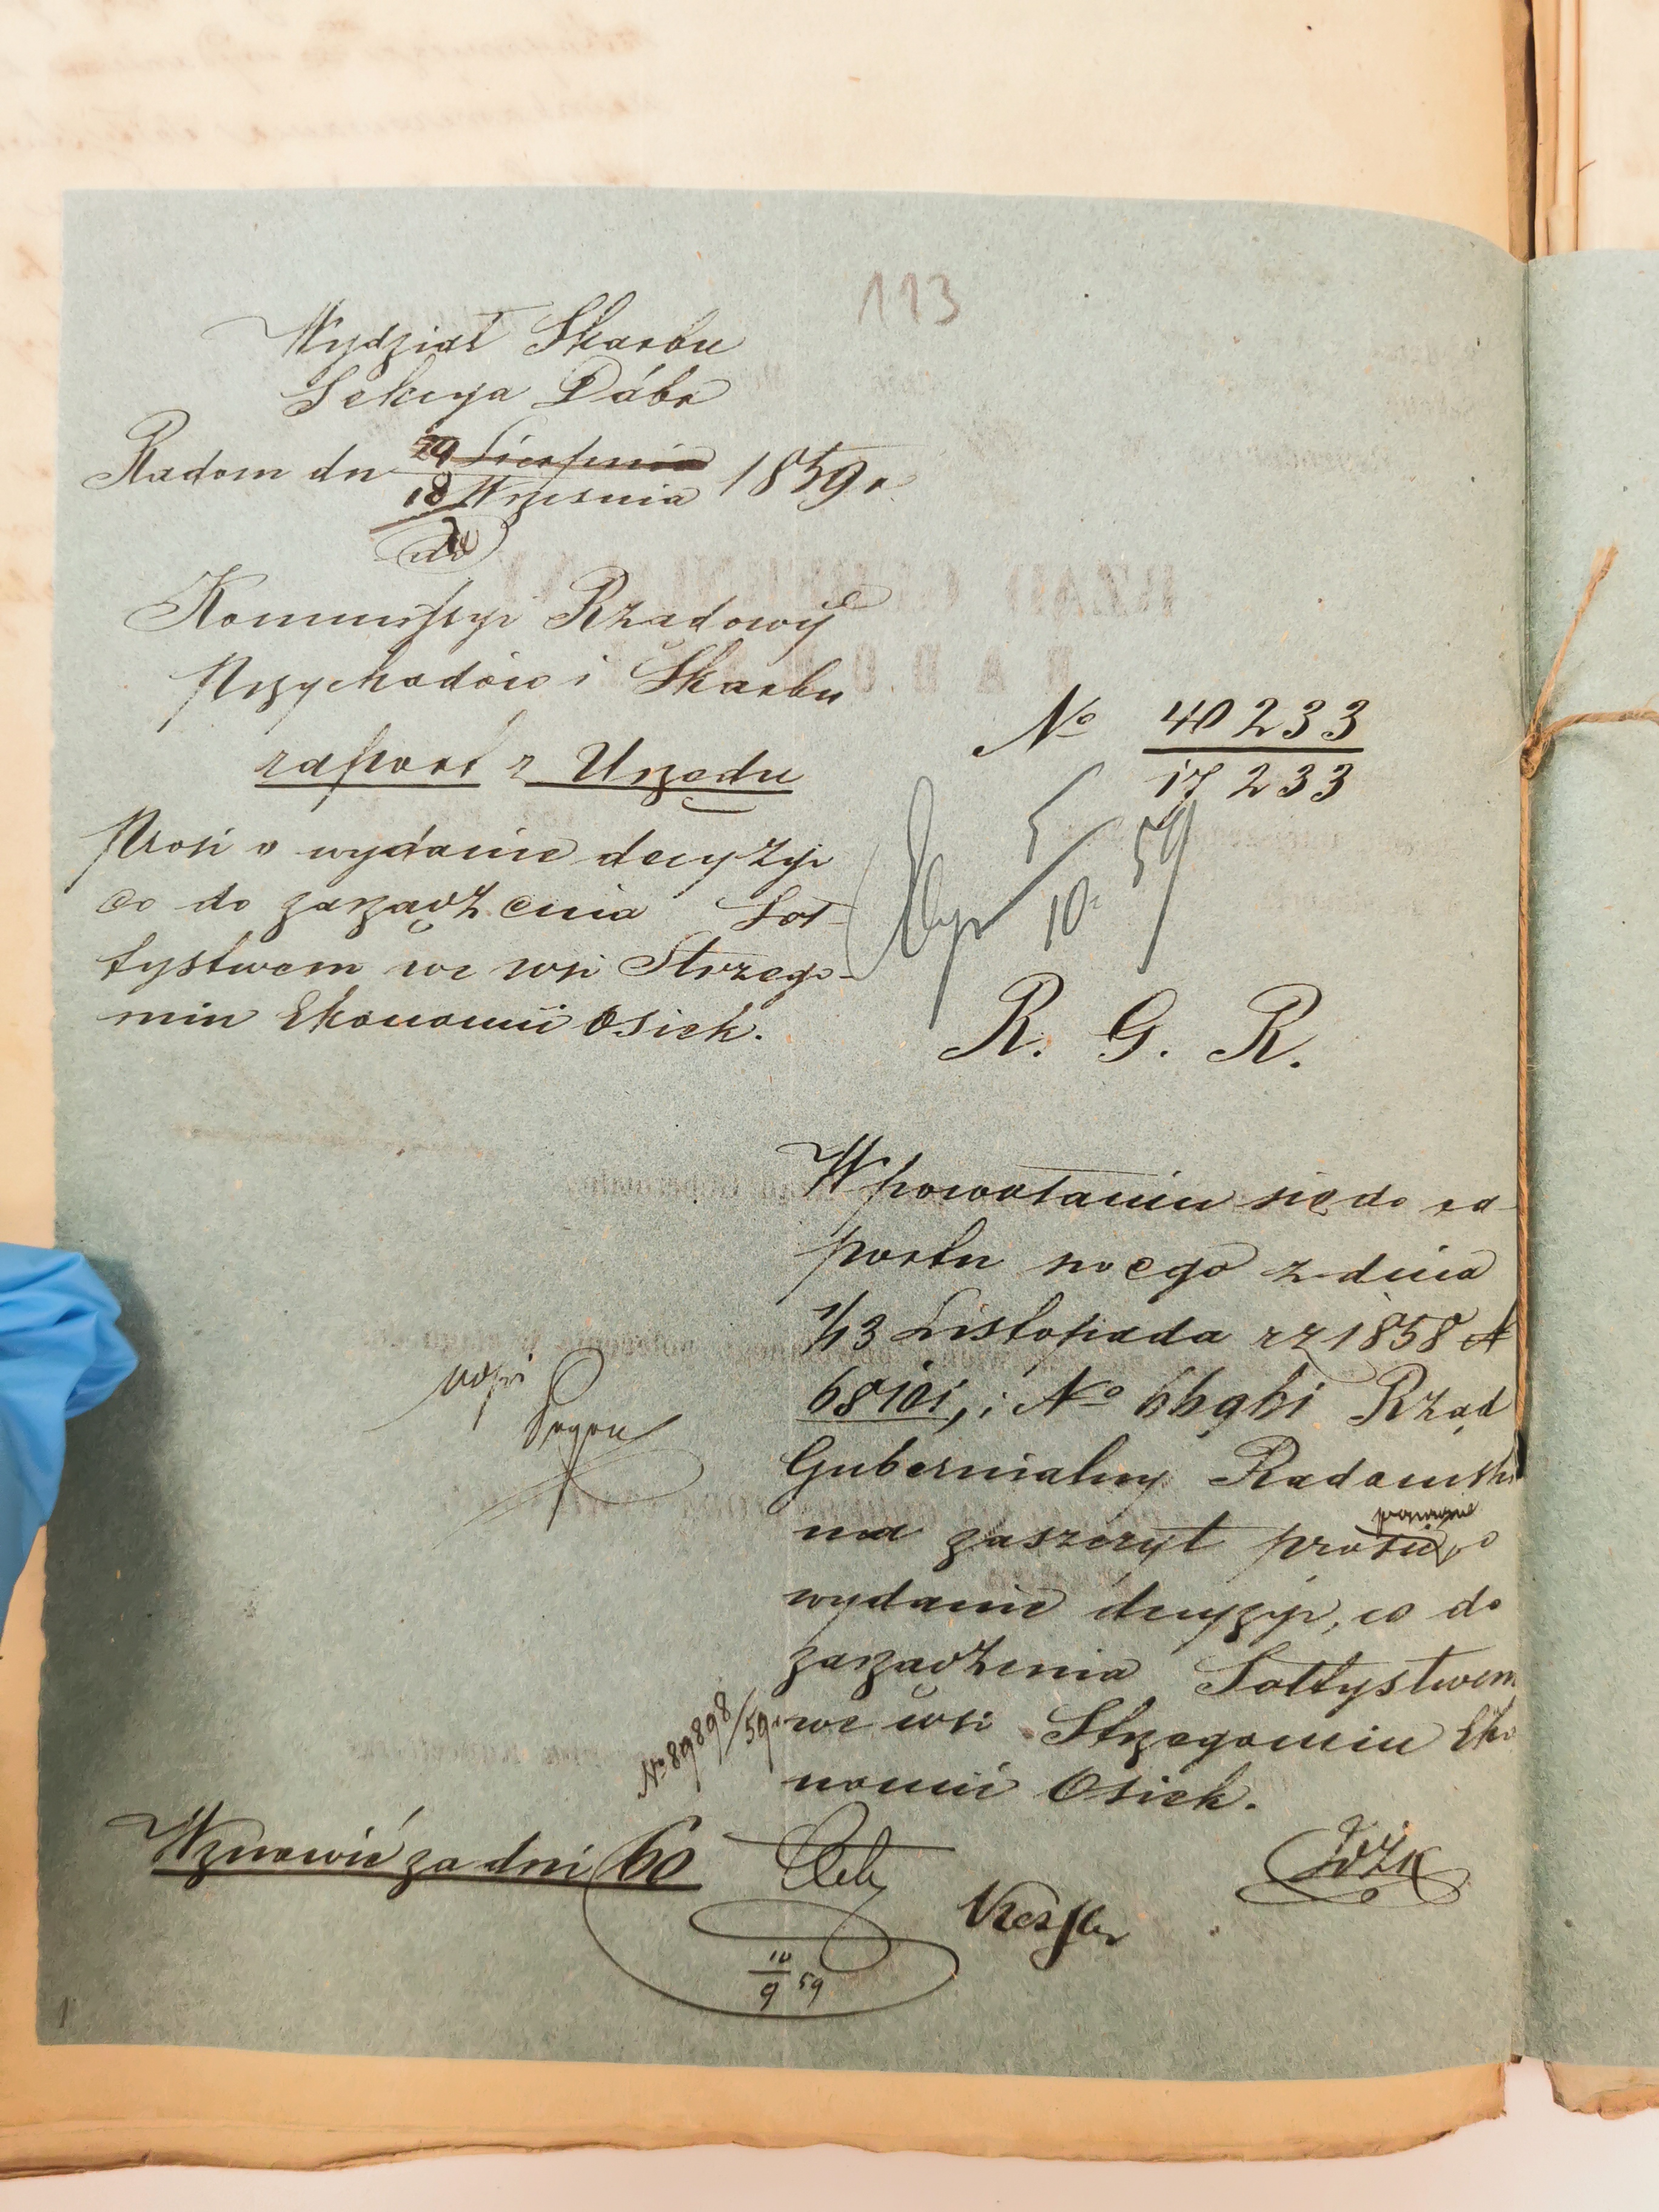 113
Wydział Skarbu
Sekcya Dóbr
Radom dn 29 Sierpnia 1859 r.
18 Września
do
Kommissyi Rządowéj
Przychodów i Skarbu
raport z Urzędu
Prosi o wydanie decyzyi
co do zarządzenia Soł-
tystwem we wsi Strzego-
min Ekonomii Osiek.
No 40233
17233
Exp 5/10 59
R. G. R.
W powołaniu się do ra-
portu swego z dnia
1/13 Listopada rz 1858 N
68101, i No 66961 Rząd
Gubernialny Radomski
ma zaszczyt prosić ponownie o
wydanie decyzyi, co do
zarządzenia Sołtystwem
we wsi Strzegominu Eko
nomii Osiek.
No 89898/59
Wznowić za dni 60
10/9 59